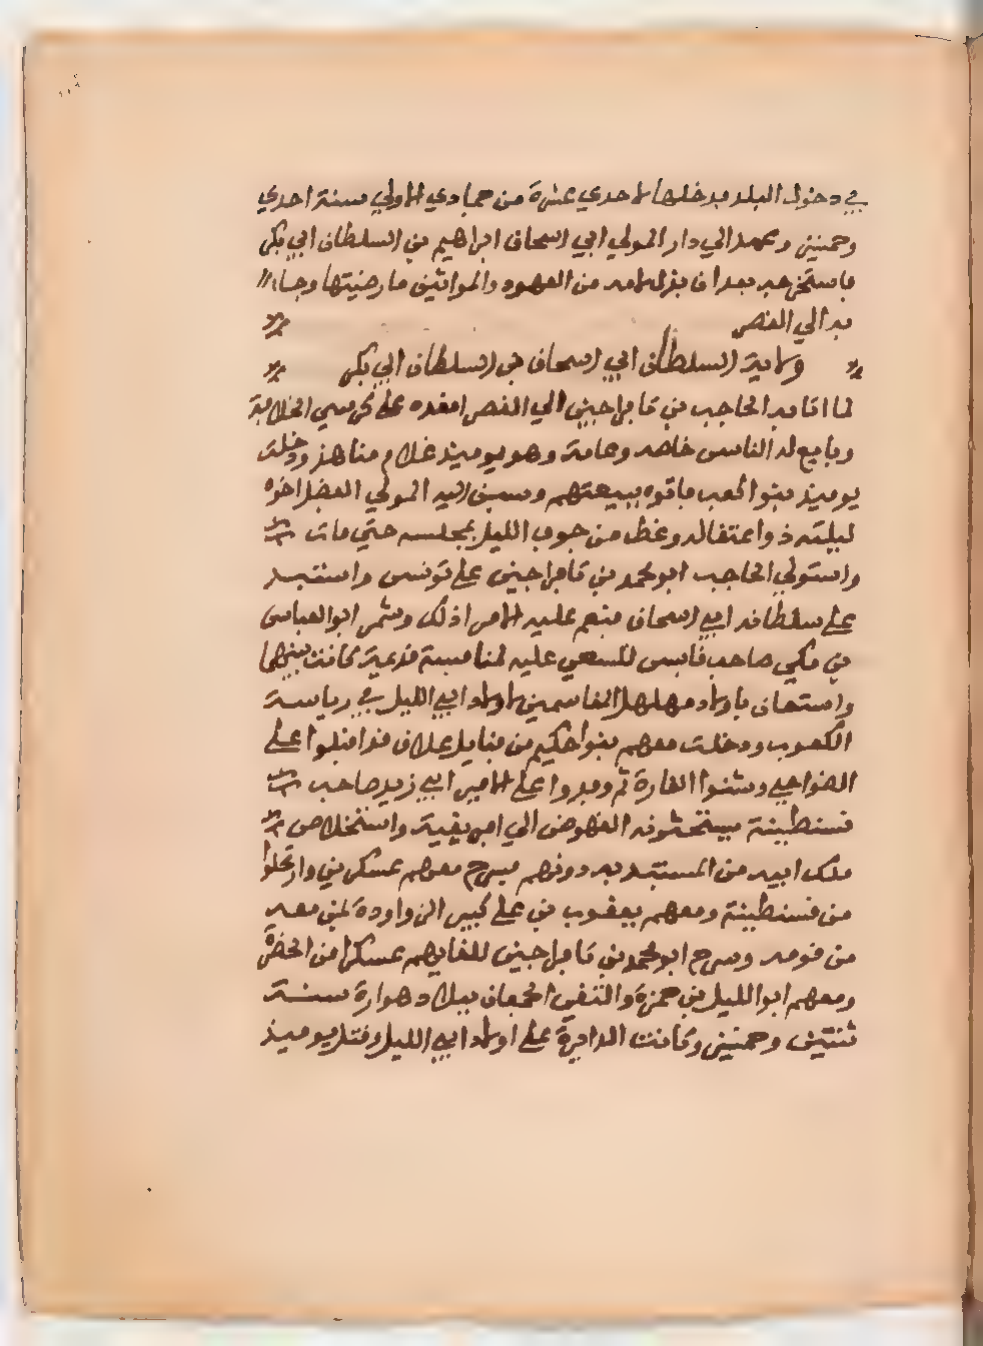 في دخول البلد فدخلها لاحدي عشرة من جمادي الاولي سنة احدي
وخمسين وعمد الي دار المولي ابي اسحاق ابراهيم بن السلطان ابي بكر
فاستخرجه بعد ان بذل لامه من العهود والمواثيق ما رضيتها وجاء
به الي القصر
ولاية السلطان ابي اسحاق بن السلطان ابي بكر
لما اقامه الحاجب بن تافراجين الي القصر اقعده علي كرسي الخلافة
وبايع له الناس خاصه وعامة وهو يوميذ غلام مناهز ودخلت
يوميذ بنو الكعب فاتوه ببيعتهم وسيق اليه المولي الفضل اخوه
ليلتيذ واعتقاله وغط من جوف الليل بمجلسه حتي مات
واستولي الحاجب ابو محمد بن تافراجين علي تونس واستبد
علي سلطانه ابي اسحاق فنعم عليه الامر اذلك وشمر ابو العباس
بن مكي صاحب قابس للسعي عليه لمنافسة قديمة كانت بينهما
واستعان باولاد مهلهل المقاسمين لاولاد ابي الليل في رياسة
الكعوب ودخلت معهم بنوا حكيم من قبايل علاق فداقبلوا علي
الضواحي وشنوا الغارة ثم وفدوا علي الامير ابي زيد صاحب
قسنطينة يستحثونه النهوض الي افريقية واستخلاص
ملك ابيه من المستبد به دونهم فسرح معهم عسكر بني وارتحلوا
من قسنطينة ومعهم يعقوب بن علي كبير الزواودة لمن معه
من قومه وسرح ابو محمد بن تافراجين للقايهم عسكرا من الحضرة
ومعهم ابو الليل بن حمزة والتقي الجمعان ببلاد هوارة سنة
ثنتين وخمسين وكانت الدايرة علي اولاد ابي الليل وقتل يوميذ